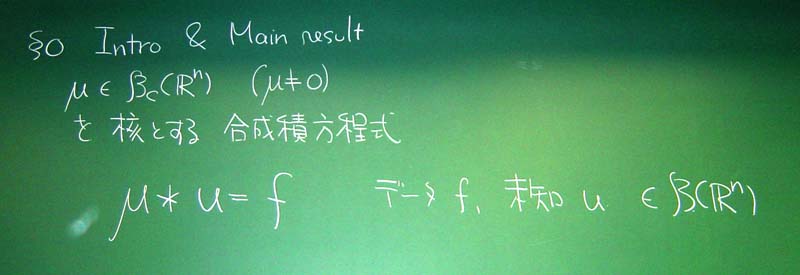 §0 Intro & Main result
μ ∈ ℬ_c(ℝⁿ) (μ≠0)
を核とする 合成積方程式
μ * u = f データ f, 未知 u ∈ ℬ(ℝⁿ)